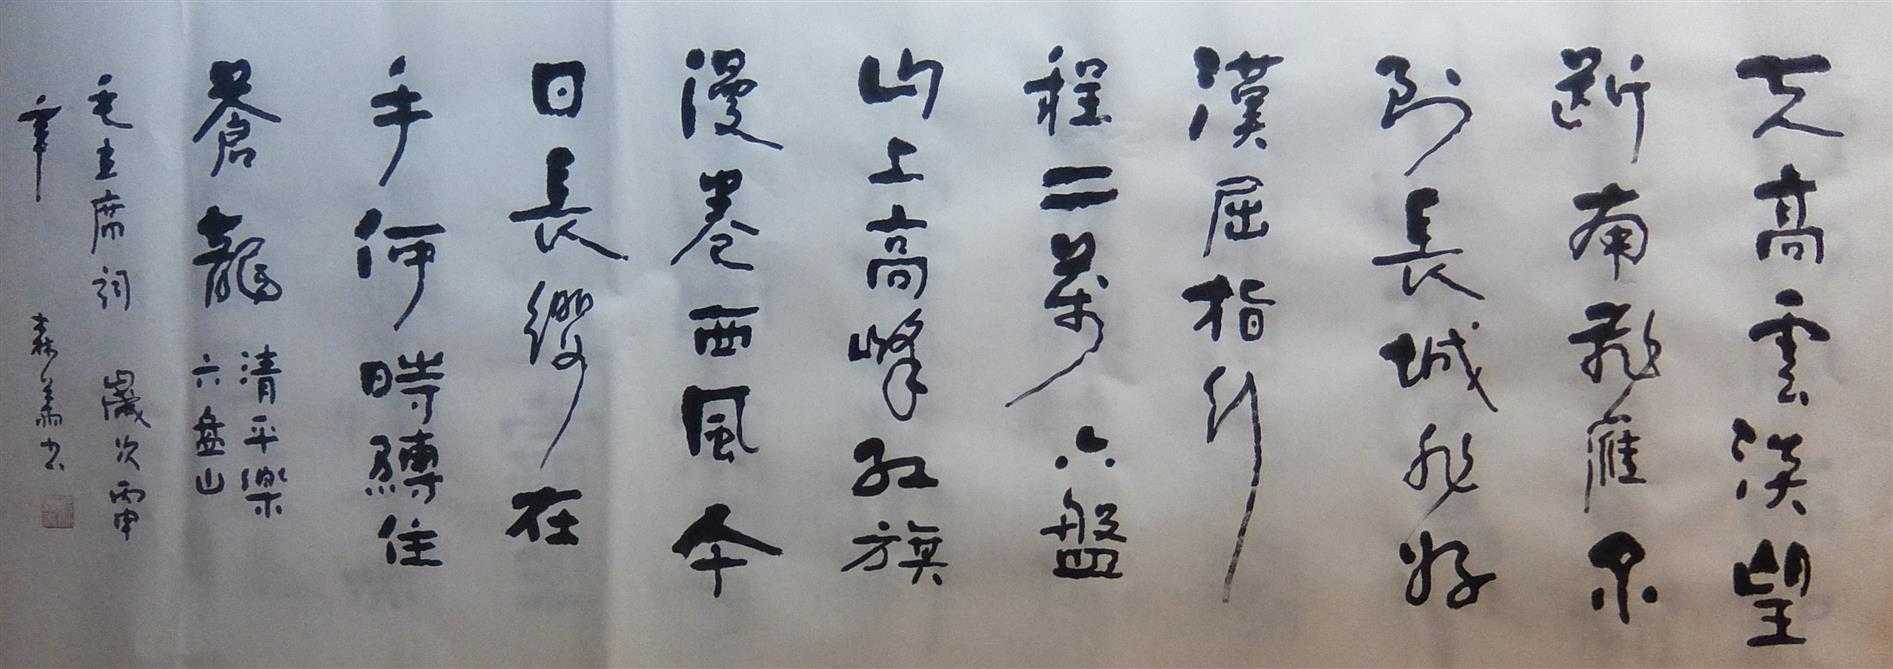 天高雲淡望
斷南飛雁不
到長城非好
漢屈指行
程二萬六盤
山上高峰红旗
漫卷西風今
日長纓在
手何時縛住
蒼龍
清平樂
六盘山
毛主席詞 歲次丙申
年 森書